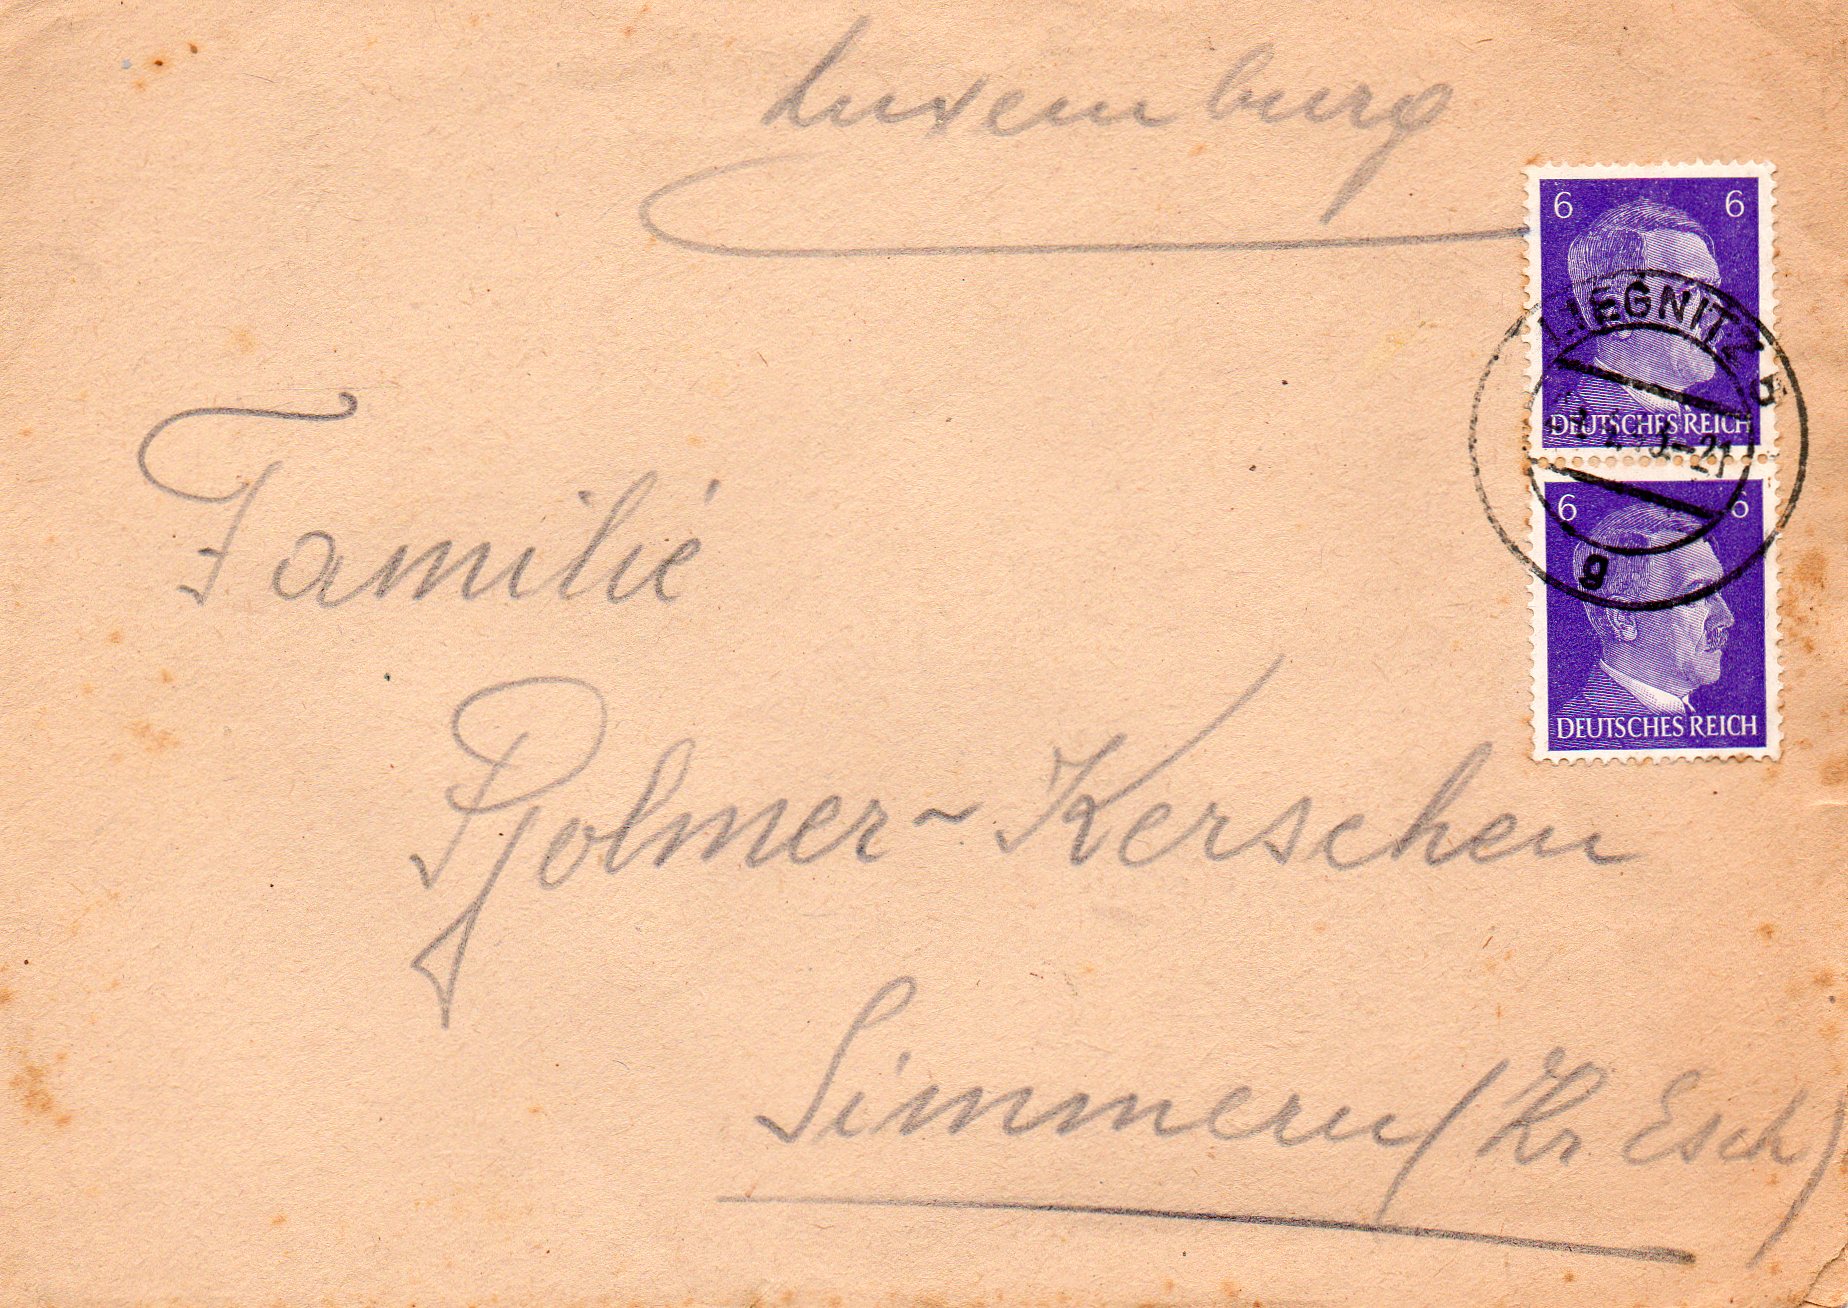 Luxemburg
6 6
LIEGNITZ 5
DEUTSCHES REICH
-21
6 6
g
DEUTSCHES REICH
Familie
Kerschen
Simmern (Kr. Esch)